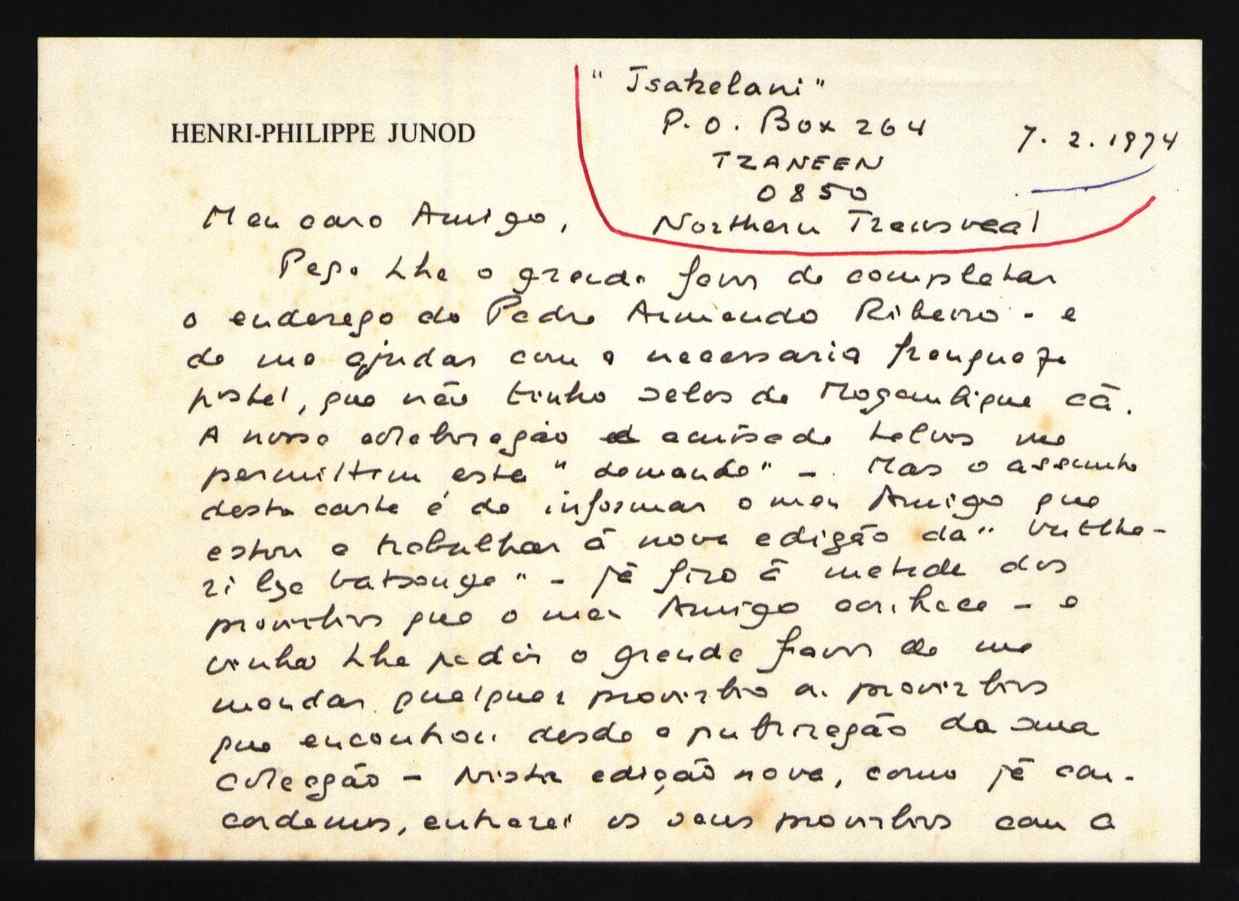 HENRI-PHILIPPE JUNOD
"Tsakelani"
P.O. Box 264
TZANEEN
0850
Northern Transvaal
7.2.1974
Meu caro Amigo,
Peço Lhe o grande favor de completar
o endereço do Padre Armando Ribeiro - e
de me ajudar com a necessaria franqueza
postal, que não tinho selos de Moçambique cá.
A nossa colaboração e amisade talvos me
permittem esta "demanda" -. Mas o assunto
desta carta é de informar o meu Amigo que
estou a trabalhar á nova edição da "Vutlha-
ri bya Vatsonga" - já fizo á metade dos
proverbios que o meu Amigo conhece - e
vinho Lhe pedir o grande favor de me
mandar qualquer proverbio ou proverbios
que encontrou desde a publicação da sua
colecção - Nista edição nova, como já con-
cordemos, entrarei os seus proverbios com a